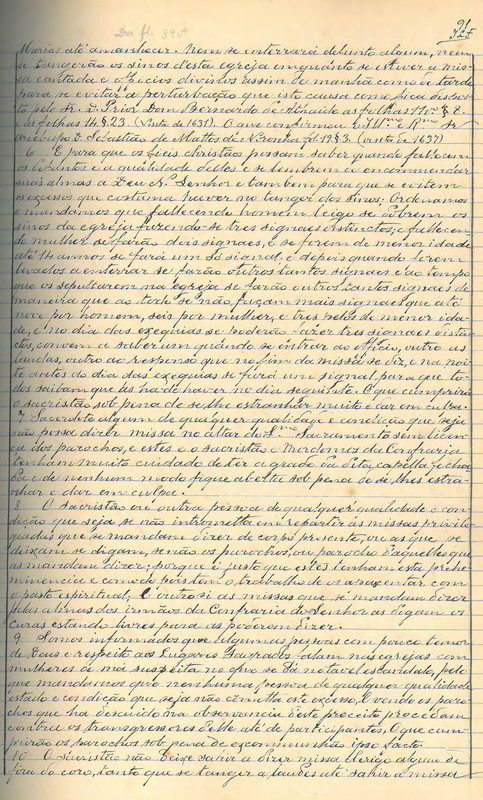 Da fl. 89 vº
91
Marias até amanhecer. Nem se enterrará defunto algum, nem
se tangerão os sinos d'esta egreja emquanto se estiver a mis-
sa cantada e officios divinos assim de manhã como de tarde
para se evitar a perturbação que isto causa como fica dispos-
to pelo Sr. D. Prior Dom Bernardo de Athaide as folhas § 8.
e as folhas 14 § 23. (Visita de 1631). O que confirmou o Illmo e Rmo Sr
Arcebispo D. Sebastião de Mattos de Noronha fol. 19 § 3. (visita de 1637)
6 E para que os fieis christãos possam saber quando fallecem
os defuntos e a qualidade d'elles e se lembrem de encommendar
suas almas a Deus N. Senhor e tambem para que se evitem
excessos que costuma haver no tanger dos sinos: Ordenamos
e mandamos que fallecendo homem leigo se dobrem os
sinos da egreja fazendo-se tres signaes distinctos; e fallecen-
do mulher se farão dois signaes, e se forem de menor idade
até 14 annos se fará um só signal, e depois quando forem
levados a enterrar se farão outros tantos signaes e ao tempo
que os sepultarem na egreja se farão outros tantos signaes de
maneira que ao todo se não façam mais signaes que até
nove por homem, seis por mulher, e tres pelos de menor ida-
de, e no dia das exequias se poderão fazer tres signaes distin-
ctos, convem a saber um quando se entrar ao officio, outro as
laudas, outro ao responso que no fim da missa se diz, e na noi-
te antes do dia das exequias se fará um signal para que to-
dos saibam que as ha de haver no dia seguinte. O que cumprirá
o sacristão sob pena de se lhe estranhar muito e dar em culpa.
7 Sacerdote algum de qualquer qualidade e condição que seja
não possa dizer missa no altar do S.mo Sacramento sem licen-
ça dos parochos, e estes e o sacristão e Mordomos da Confraria
tenham muito cuidado de ter a grade da dita capella fecha-
da e de nenhum modo fique aberta sob pena de se lhes estra-
nhar e dar em culpa.
8 O sacristão ou outra pessoa de qualquer qualidade e con-
dição que seja se não intrometta em repartir as missas privile-
giadas que se mandam dizer de corpo presente, ou as que se
deixam se digam, senão os parochos, ou parocho d'aquelles que
as mandam dizer; porque é justo que estes tenham esta prehe-
minencia e commodo pois tem o trabalho de os apascentar com
o pasto espiritual, E outro si as missas que se mandam dizer
pelas almas dos irmãos da Confraria do Senhor as digam os
curas estando livres para as poderem dizer.
9 Somos informados que algumas pessoas com pouco temor
de Deus e respeito aos Lugares Sagrados falam nas egrejas com
mulheres de má suspeita no que se dá notavel escandalo, pelo
que mandamos que nenhuma pessoa de qualquer qualidade
estado e condição que seja não cometta este excesso, e vendo os paro-
chos que ha descuido na observancia d'este preceito procedam
contra os transgressores d'elle até de participantes, O que cum-
prirão os parochos sob pena de excommunhão ipso facto.
10 O sacristão não deixe sahir a dizer missa clerigo algum de
fora do coro, tanto que se tanger a laudes até sahir a missa